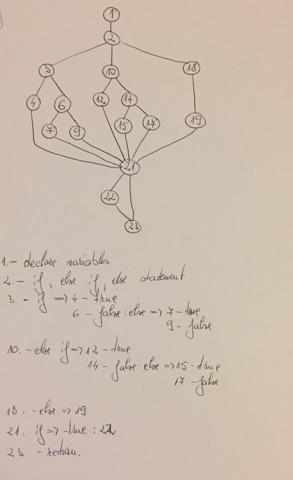 1
2
3 10 18
4 6 12 14 19
7 9 15 17
21
22
23
1.- declare variables
2.- if, else if, else statement
3.- if => 4 - true
6 - false: else => 7 - true
9 - false
10.- else if => 12 - true
14 - false: else => 15 - true
17 - false
18.- else => 19
21. if => - true: 22
23 - return.